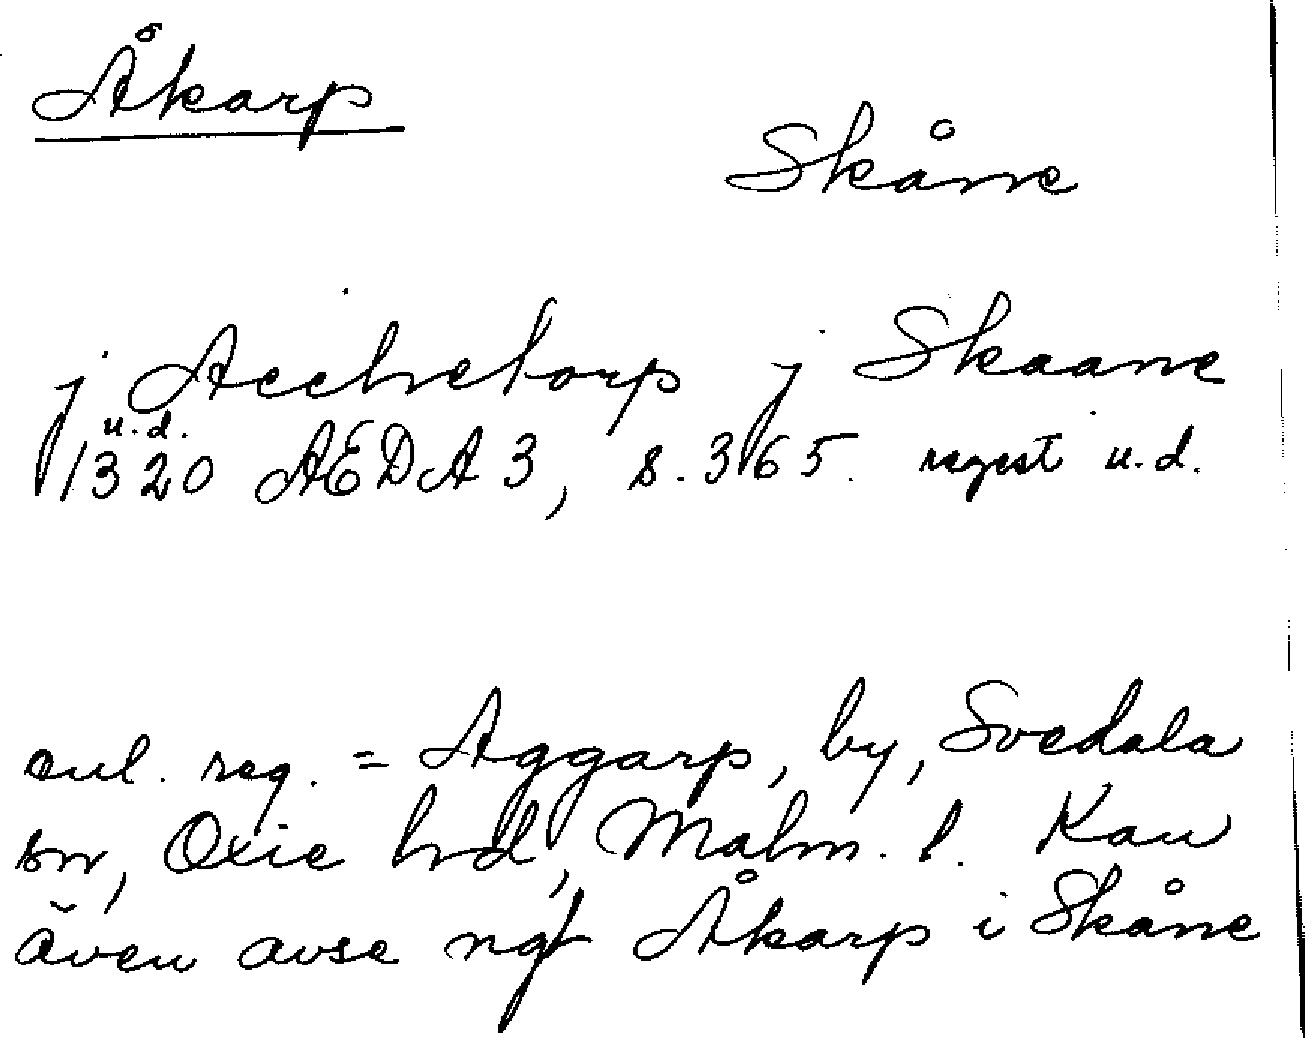 Åkarp
Skåne
j Acchetorp j Skaane
u.d.
1320 ÆDA 3, s. 365. regest u.d.
enl. reg. = Aggarp, by, Svedala
sn, Oxie hd, Malm. l. Kan
även avse ngt Åkarp i Skåne